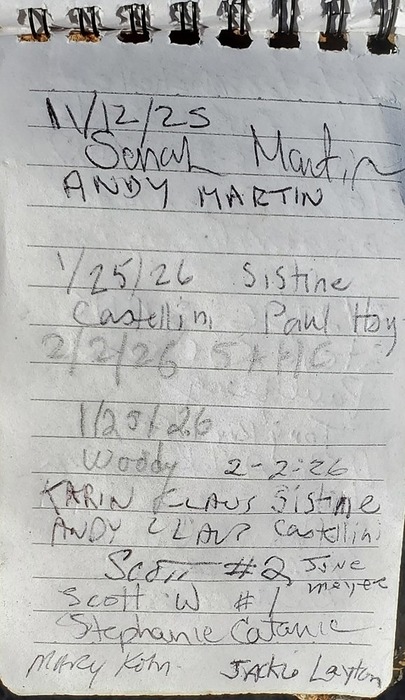 11/12/25
Martin
ANDY MARTIN
1/25/26 Sistine
Castellini Paul Hoy
2/2/26
1/25/26
Woody 2-2-26
KARIN KLAUS Sistine
ANDY KLAUS Castellini
Scott #2 June
meyer
Scott W #1
Stephanie Catanic
MARY Kohn Jackie Layton